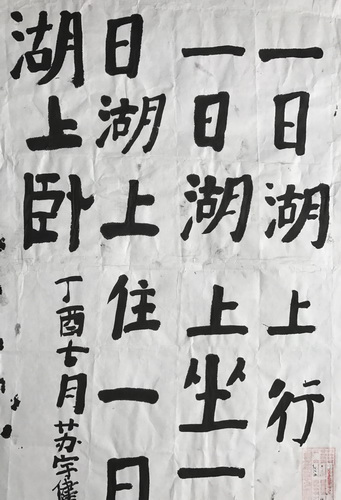 一日湖上行
一日湖上坐一
日湖上住一日
湖上卧
丁酉七月苏宇